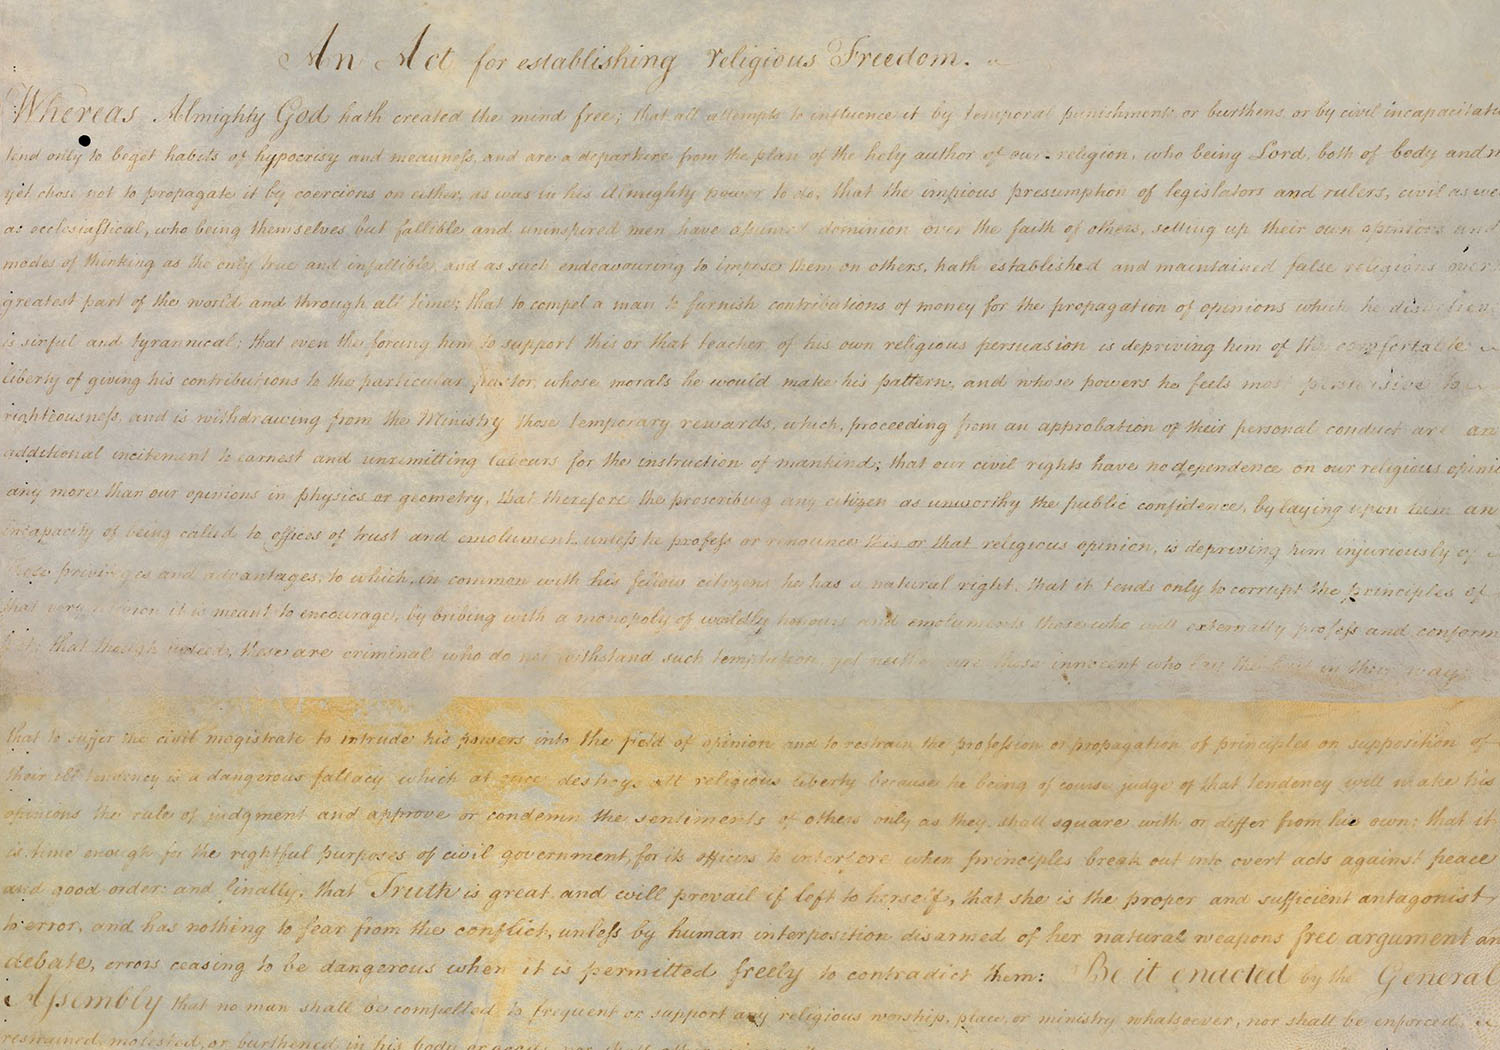 An Act for establishing religious Freedom.
Whereas Almighty God hath created the mind free; that all attempts to influence it by temporal punishments or burthens, or by civil incapacitati
tend only to beget habits of hypocrisy and meanness, and are a departure from the plan of the holy author of our religion, who being Lord, both of body and m
yet chose not to propagate it by coercions on either, as was in his Almighty power to do, that the impious presumption of legislators and rulers, civil as we
as ecclesiastical, who being themselves but fallible and uninspired men have assumed dominion over the faith of others, setting up their own opinions and
modes of thinking as the only true and infallible, and as such endeavouring to impose them on others, hath established and maintained false religions over
greatest part of the world and through all time; that to compel a man to furnish contributions of money for the propagation of opinions which he disbelieves
is sinful and tyrannical; that even the forcing him to support this or that teacher of his own religious persuasion is depriving him of the comfortable
liberty of giving his contributions to the particular pastor whose morals he would make his pattern, and whose powers he feels most persuasive to
righteousness, and is withdrawing from the Ministry those temporary rewards, which, proceeding from an approbation of their personal conduct are an
additional incitement to earnest and unremitting labours for the instruction of mankind; that our civil rights have no dependence on our religious opinio
any more than our opinions in physics or geometry, that therefore the proscribing any citizen as unworthy the public confidence, by laying upon him an
incapacity of being called to offices of trust and emolument, unless he profess or renounce this or that religious opinion, is depriving him injuriously of
those privileges and advantages, to which, in common with his fellow citizens he has a natural right, that it tends only to corrupt the principles of
that very religion it is meant to encourage, by bribing with a monopoly of worldly honours and emoluments those who will externally profess and conform
to it; that though indeed, these are criminal who do not withstand such temptation, yet neither are those innocent who lay the bait in their way;
that to suffer the civil magistrate to intrude his powers into the field of opinion and to restrain the profession or propagation of principles on supposition of
their ill tendency is a dangerous fallacy which at once destroys all religious liberty because he being of course judge of that tendency will make his
opinions the rule of judgment and approve or condemn the sentiments of others only as they shall square with or differ from his own; that it
is time enough for the rightful purposes of civil government, for its officers to interfere when principles break out into overt acts against peace
and good order: and finally, that Truth is great and will prevail if left to herself, that she is the proper and sufficient antagonist
to error, and has nothing to fear from the conflict, unless by human interposition disarmed of her natural weapons free argument an
debate, errors ceasing to be dangerous when it is permitted freely to contradict them: Be it enacted by the General
Assembly that no man shall be compelled to frequent or support any religious worship, place, or ministry whatsoever, nor shall be enforced,
restrained, molested, or burthened in his body or goods, nor shall